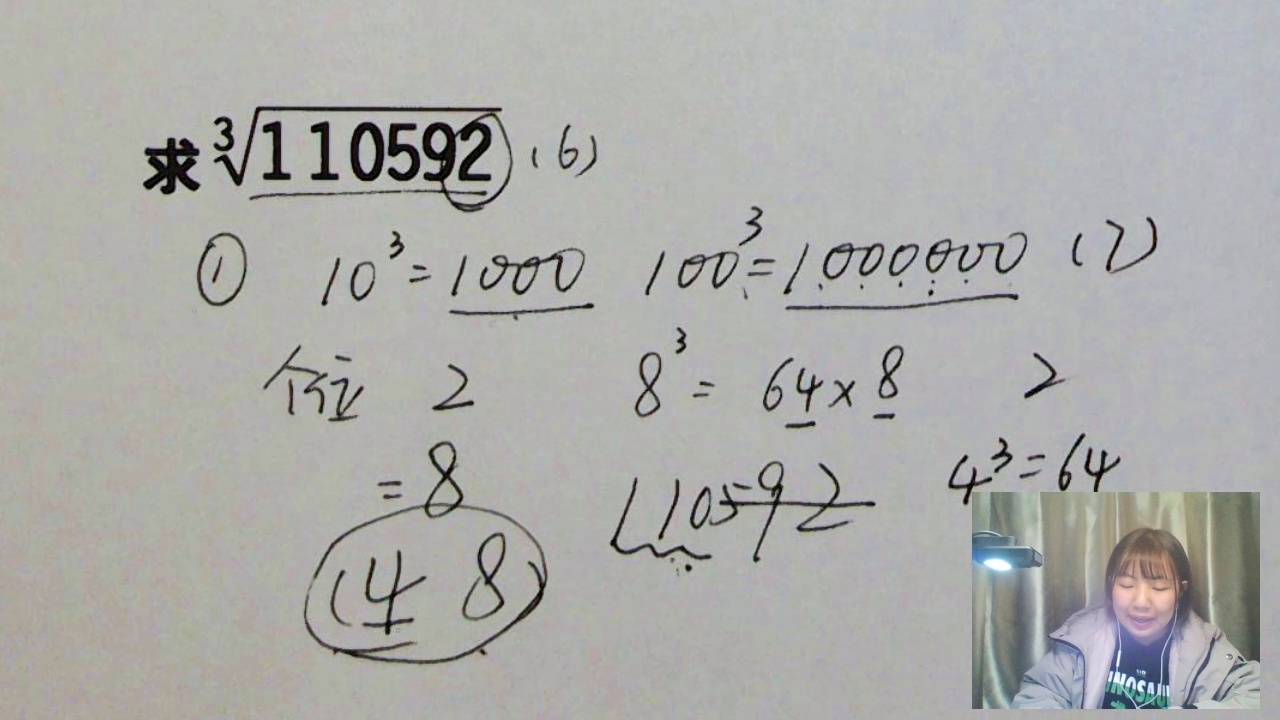 求 ³√110592 (6)
① 10³=1000 100³=1000000 (7)
个位 2 8³= 64×8 2
=8 110592 4³=64
(48)
INOSAU